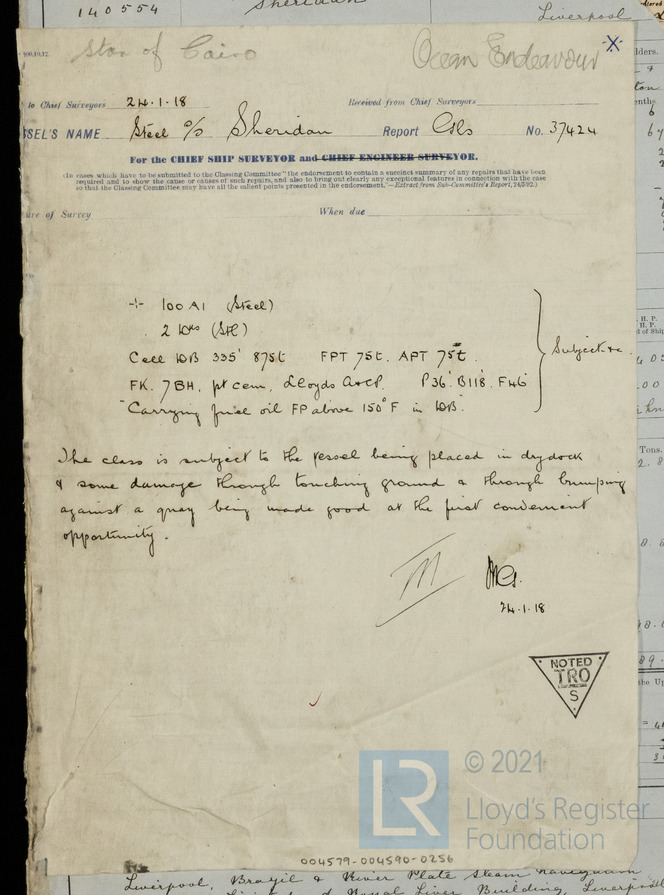 140554
Sheridan
Liverpool
Star of Cairo
Ocean Endeavour
X
to Chief Surveyors 24.1.18 Received from Chief Surveyors
SEL'S NAME Steel S/S Sheridan Report Gls No. 37424
For the CHIEF SHIP SURVEYOR and CHIEF ENGINEER SURVEYOR.
(In cases which have to be submitted to the Classing Committee "the endorsement to contain a succinct summary of any repairs that have been
required and to show the cause or causes of such repairs, and also to bring out clearly any exceptional features in connection with the case
so that the Classing Committee may have all the salient points presented in the endorsement."—Extract from Sub-Committee's Report, 24/5/92.)
ure of Survey When due
100 A1 (Steel)
2 Dks (Stl)
Cell DB 335' 875t FPT 75t. APT 75t.
Subject &c
FK. 7BH, pt cem, Lloyds A&CP. P36' B118' F46'
"Carrying fuel oil FP above 150°F in DB"
The class is subject to the vessel being placed in drydock
& some damage through touching ground & through bumping
against a quay being made good at the first convenient
opportunity.
24.1.18
NOTED
TRO
S
LR
© 2021
Lloyd's Register
Foundation
004579-004590-0256
Liverpool, Brazil & River Plate Steam Navigation
Royal Liver Building, Liverpool